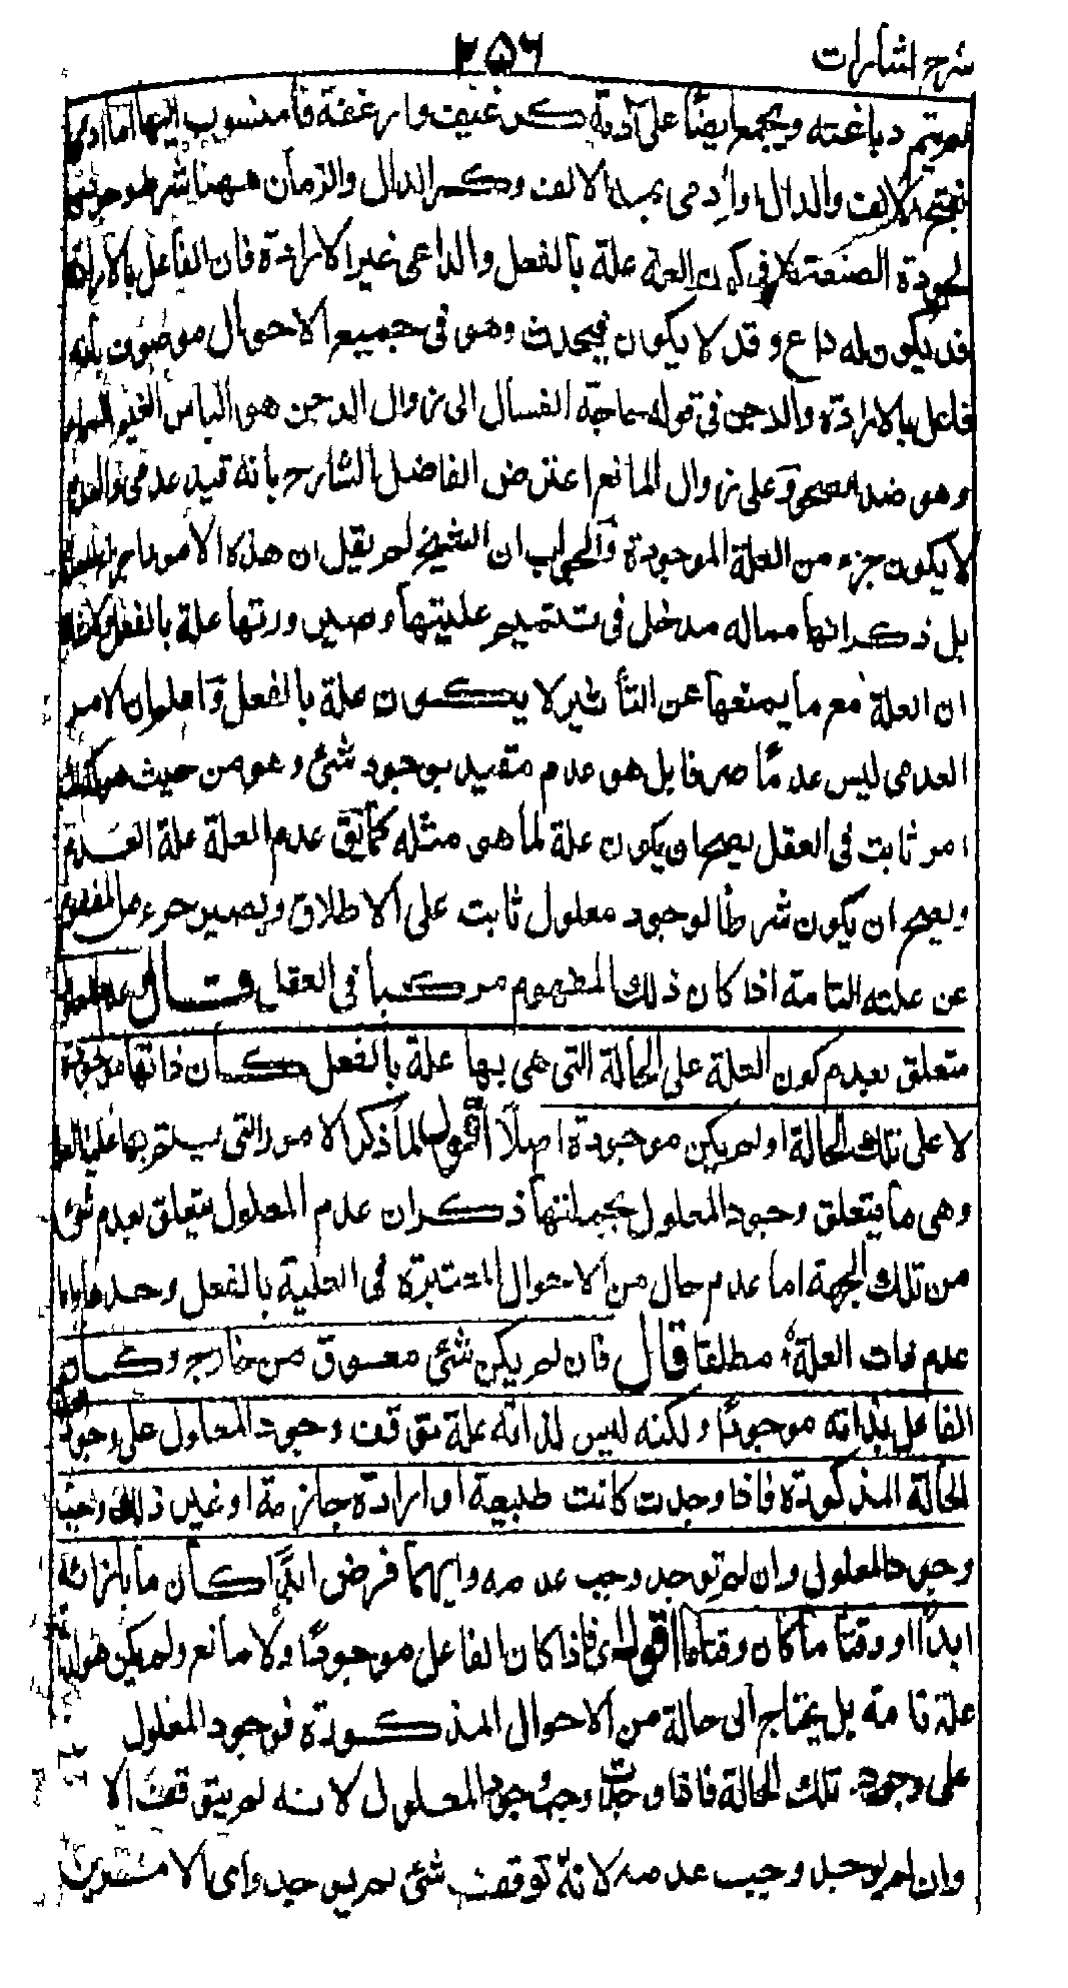 شرح اشارات
۲۵۶
لم يتم دباغته ويجمع ايضًا على آدمة كرغيف وارغفة فالمنسوب اليها اما ادمى
بفتح الالف والدال او آدمى بمد الالف وكسر الدال والزمان ههنا شرط
لجودة الصنعة لا فى كون العلة علة بالفعل والداعى غير الارادة فان الفاعل بالارادة
قد يكون له داع وقد لا يكون فيحدث وهو فى جميع الاحوال موصوف بانه
فاعل بالارادة والدجن فى قوله حاجة الغسال الى زوال الدجن هو الباس الغيم السماء
وهو ضد الصحو وعلى زوال المانع اعترض الفاضل الشارح بانه قيد عدمى والعدم
لا يكون جزء من العلة الموجودة والجواب ان الشيخ لم يقل ان هذه الامور
بل ذكر انها مما له مدخل فى تتميم عليتها وصيرورتها علة بالفعل
ان العلة مع ما يمنعها عن التأثير لا يكون علة بالفعل واعلم ان الامر
العدمى ليس عدمًا صرفا بل هو عدم مقيد بوجود شئ وهو من حيث هو كذلك
امر ثابت فى العقل يصح ان يكون علة لما هو مثله كما يق عدم العلة علة العدم
ويصح ان يكون شرطا لوجود معلول ثابت على الاطلاق ويصير جزء من المفهوم
عن علته التامة اذا كان ذلك المفهوم مركبا فى العقل قال عدم المعلول
متعلق بعدم كون العلة على الحالة التى هى بها علة بالفعل كان ذاتها موجودة
لا على تلك الحالة او لم يكن موجودة اصلًا اقول لما ذكر الامور التى يتم بها علية العلة
وهى ما يتعلق وجود المعلول بجملتها ذكر ان عدم المعلول يتعلق بعدم شئ
من تلك الجهة اما عدم حال من الاحوال المعتبرة فى العلية بالفعل وحدها واما
عدم ذات العلة مطلقا قال فان لم يكن شئ معوق من خارج وكان
الفاعل بذاته موجودًا ولكنه ليس لذاته علة توقف وجود المعلول على وجود
الحالة المذكورة فاذا وجدت كانت طبيعة او ارادة جازمة او غير ذلك وجب
وجود المعلول وان لم توجد وجب عدمه وايهما فرض ابدًا كان ما بازائه
ابدًا او وقتا ما كان وقتا ما اقول اى فاذا كان الفاعل موجودًا ولا مانع ولم يكن هو لذاته
علة تامة بل يحتاج الى حالة من الاحوال المذكورة فوجود المعلول
على وجود تلك الحالة فاذا وجدت وجب وجود المعلول لانه لم يتوقف الا
وان لم يوجد وجب عدمه لانه توقف على شئ لم يوجد واى الامرين